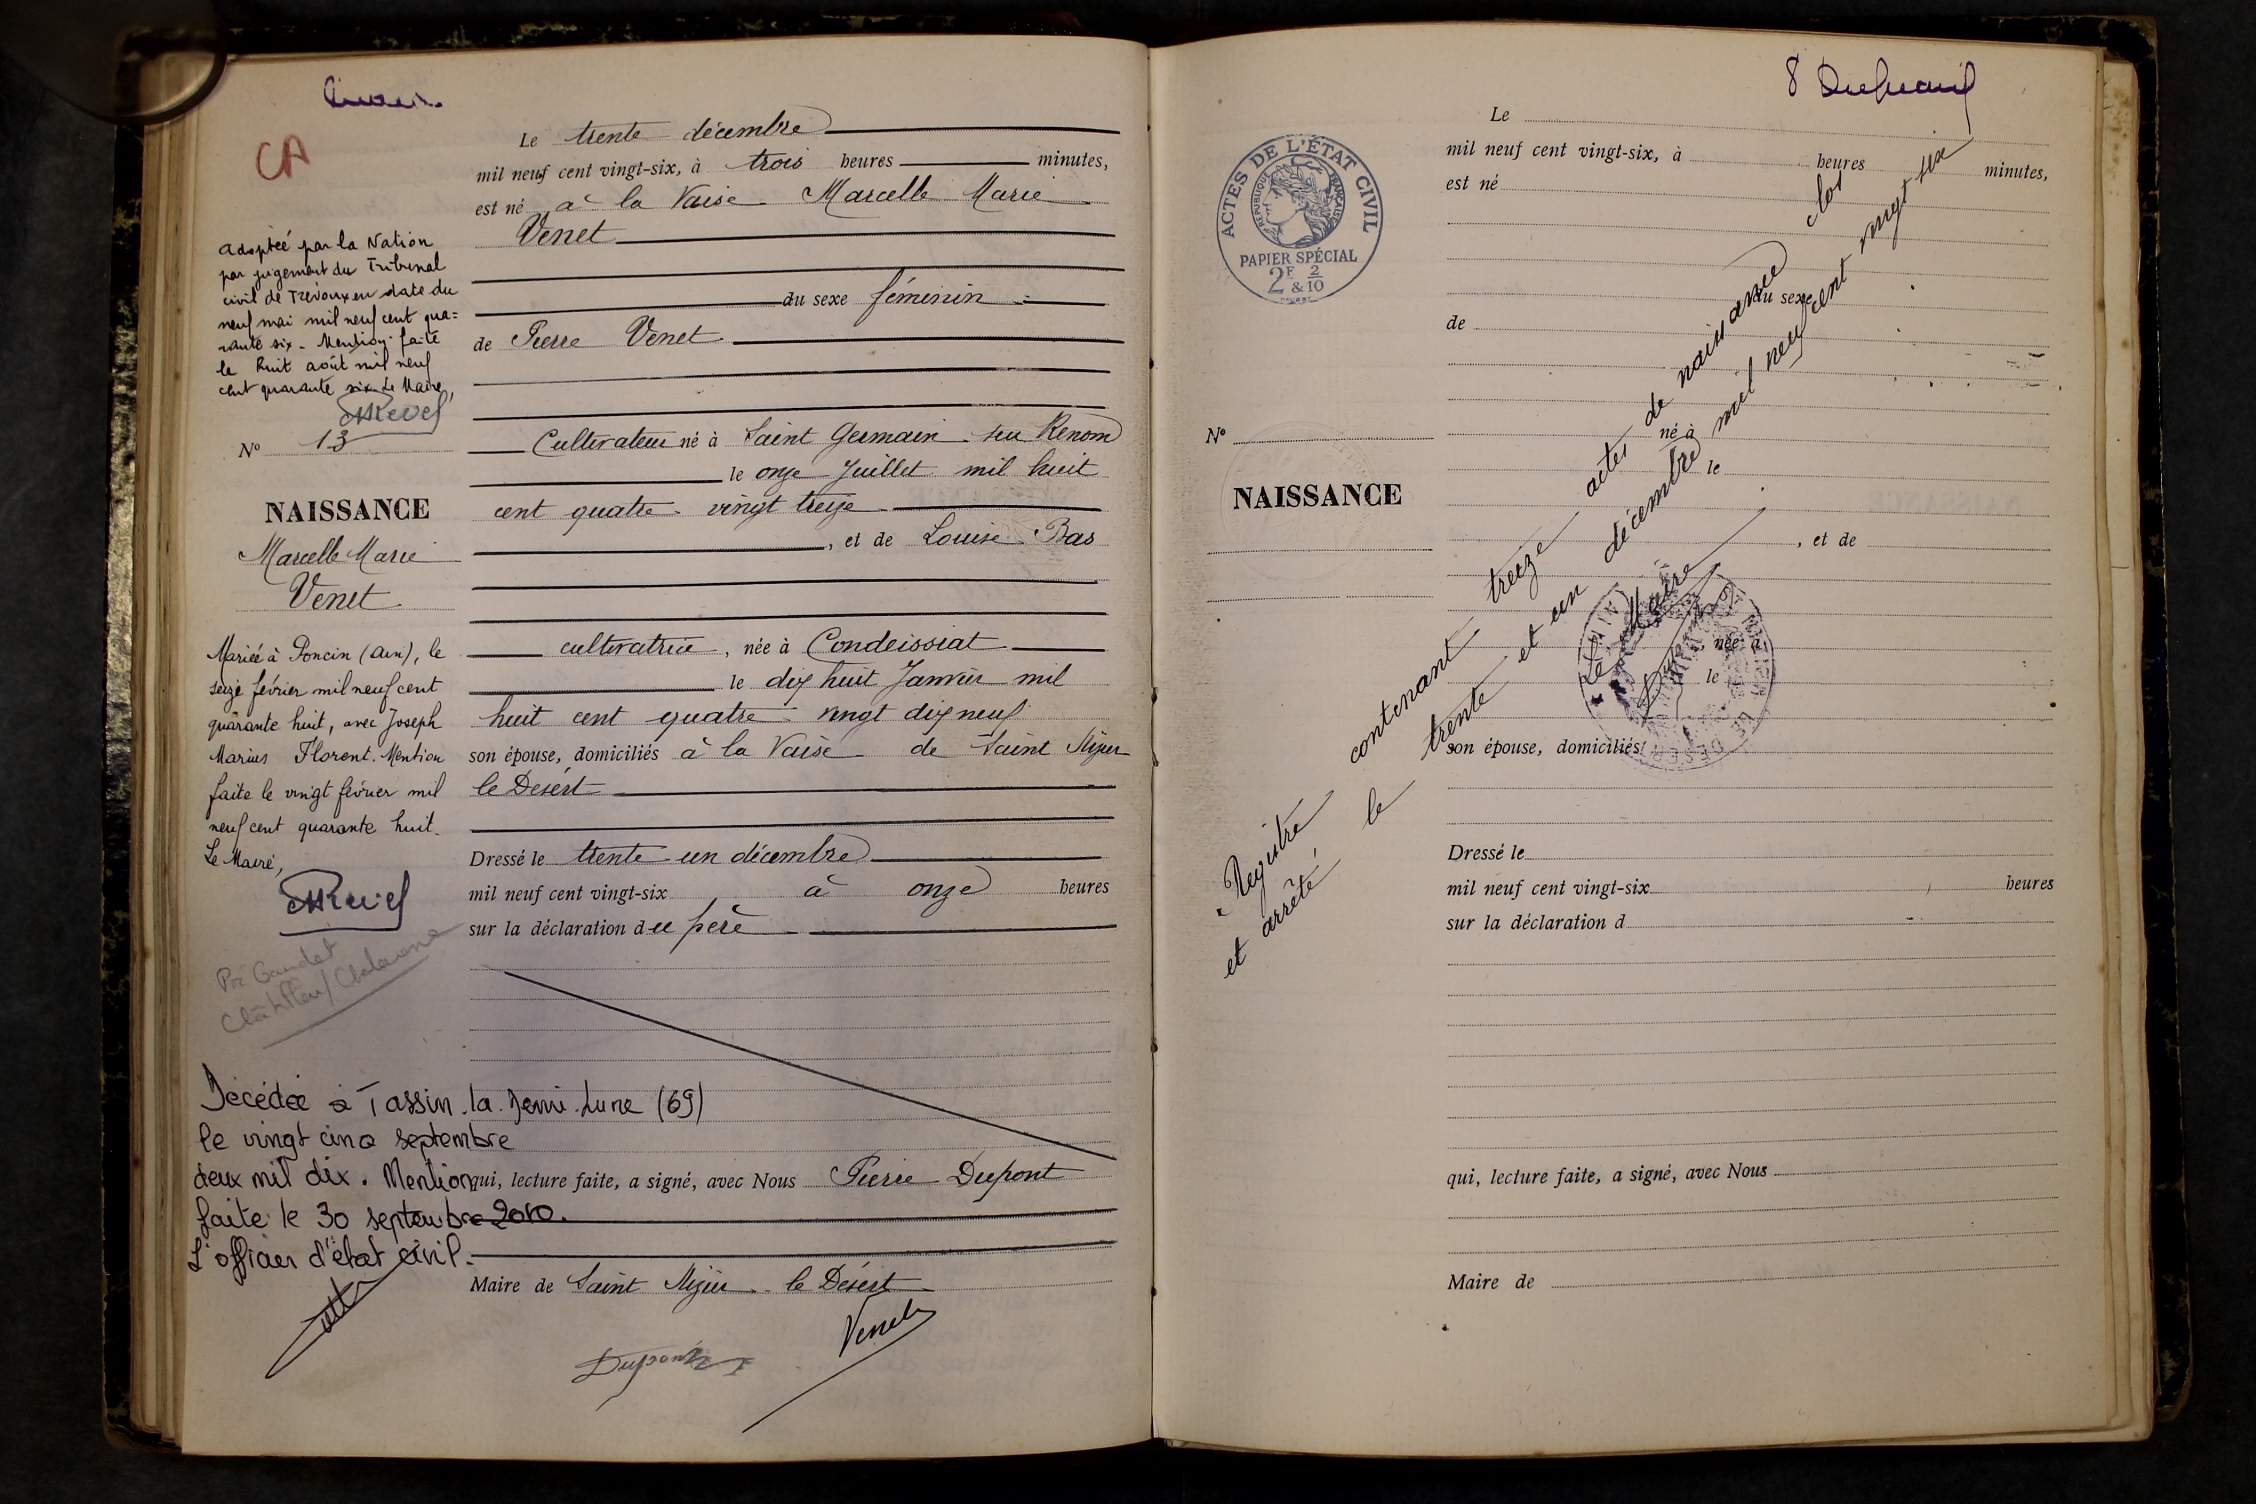 CA
adoptée par la Nation
par jugement du Tribunal
civil de Trévoux en date du
neuf mai mil neuf cent qua=
rante six. Mention faite
le huit août mil neuf
cent quarante six. Le Maire,
N° 13
NAISSANCE
Marcelle Marie
Venet
Mariée à Poncin (Ain), le
seize février mil neuf cent
quarante huit, avec Joseph
Marius Florent. Mention
faite le vingt février mil
neuf cent quarante huit.
Le Maire,
Décédée à Tassin.la.Demi.Lune (69)
le vingt cinq septembre
deux mil dix. Mention
faite le 30 septembre 2010.
L'officier d'état civil.
Le trente décembre
mil neuf cent vingt-six, à trois heures minutes,
est né à la Vaise Marcelle Marie
Venet
du sexe féminin
de Pierre Venet
Cultivateur né à Saint Germain sur Renom
le onze Juillet mil huit
cent quatre-vingt treize
, et de Louise Bas
cultivatrice, née à Condeissiat
le dix huit Janvier mil
huit cent quatre vingt dix neuf
son épouse, domiciliés à la Vaise de Saint Nizier
le Désert
Dressé le trente un décembre
mil neuf cent vingt-six à onze heures
sur la déclaration du père
qui, lecture faite, a signé, avec Nous Pierre Dupont
Maire de Saint Nizier le Désert
Dupont
Venet
8
ACTES DE L'ÉTAT CIVIL
RÉPUBLIQUE FRANÇAISE
PAPIER SPÉCIAL
2F & 2/10
N°
NAISSANCE
Le
mil neuf cent vingt-six, à heures minutes,
est né
du sexe
de
né à
le
, et de
née à
le
son épouse, domiciliés
Dressé le
mil neuf cent vingt-six heures
sur la déclaration d
qui, lecture faite, a signé, avec Nous
Maire de
Registre contenant treize actes de naissance clos
et arrêté le trente et un décembre mil neuf cent vingt six
Le Maire